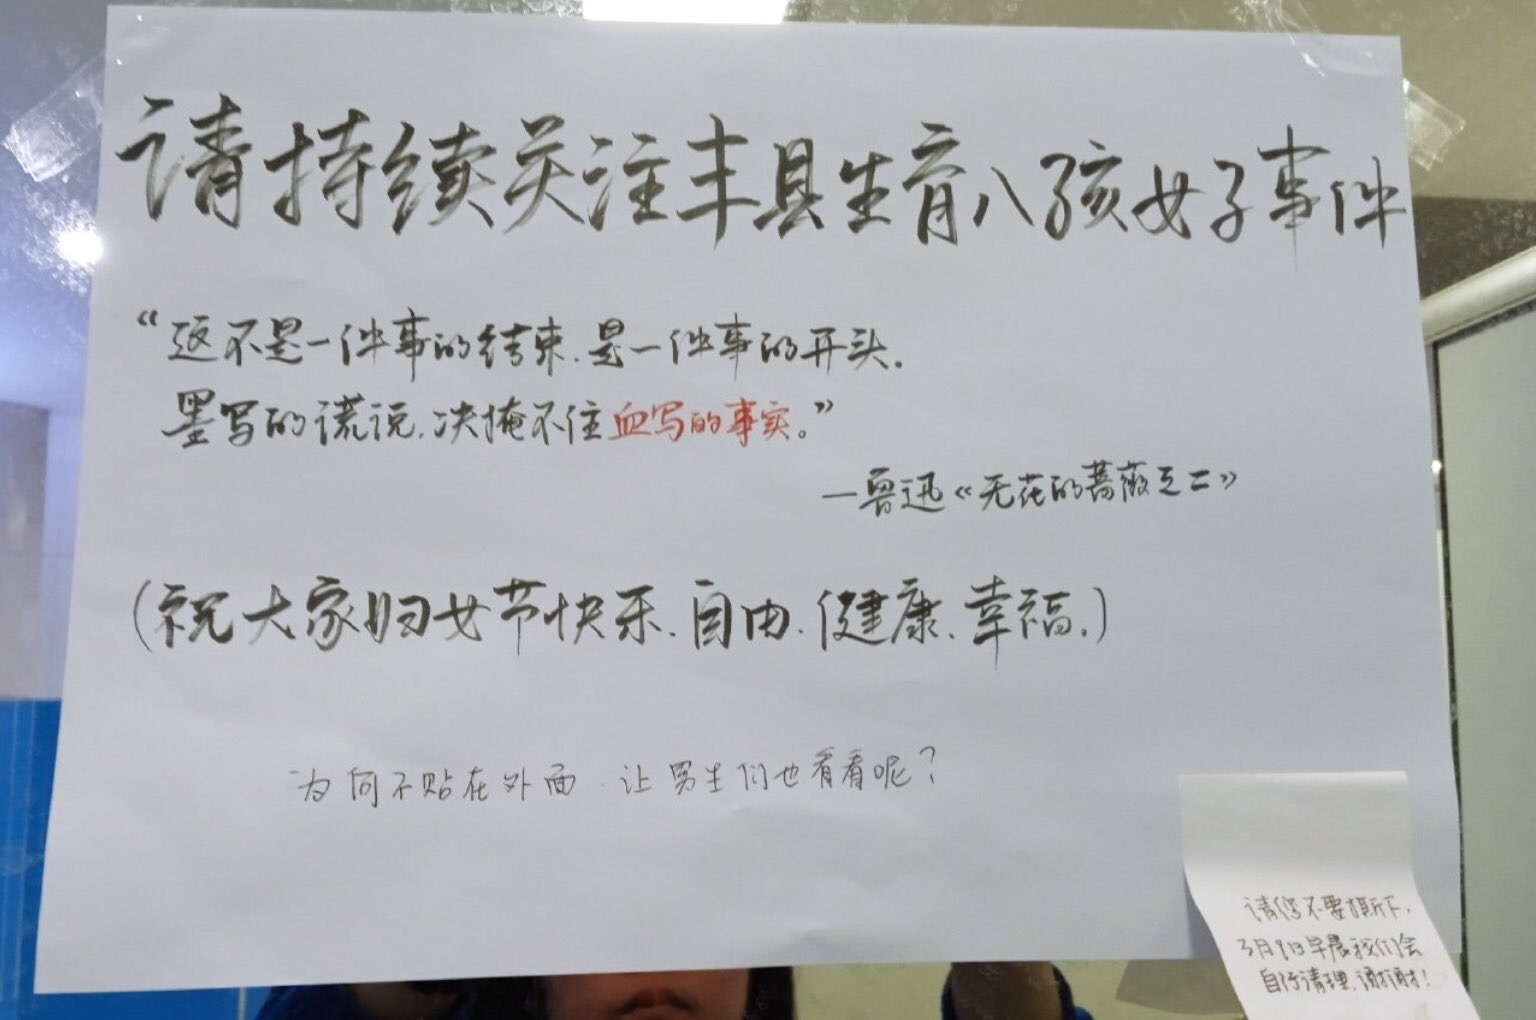 请持续关注丰县生育八孩女子事件
“这不是一件事的结束，是一件事的开头。
墨写的谎说，决掩不住血写的事实。”
—鲁迅《无花的蔷薇之二》
（祝大家妇女节快乐、自由、健康、幸福。）
为何不贴在外面，让男生们也看看呢？
请您不要撕下，
3月9日早晨我们会
自行清理，谢谢！